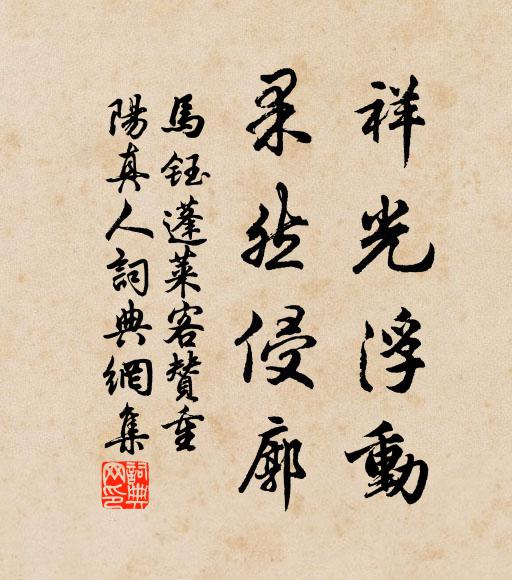 祥光浮動
果然侵廓
馬鈺蓬萊客贊重
陽真人詞典網集
詞典網印